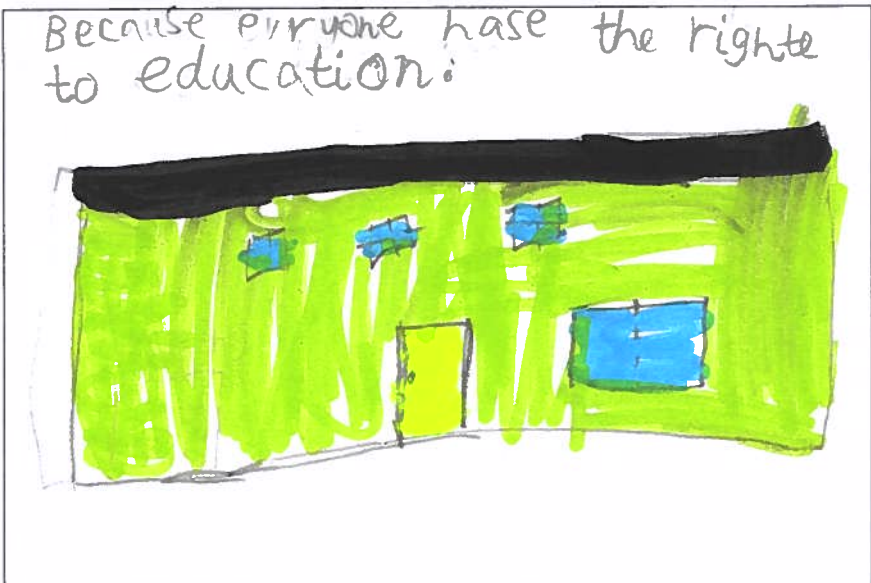 Because evryone hase the righte
to education.